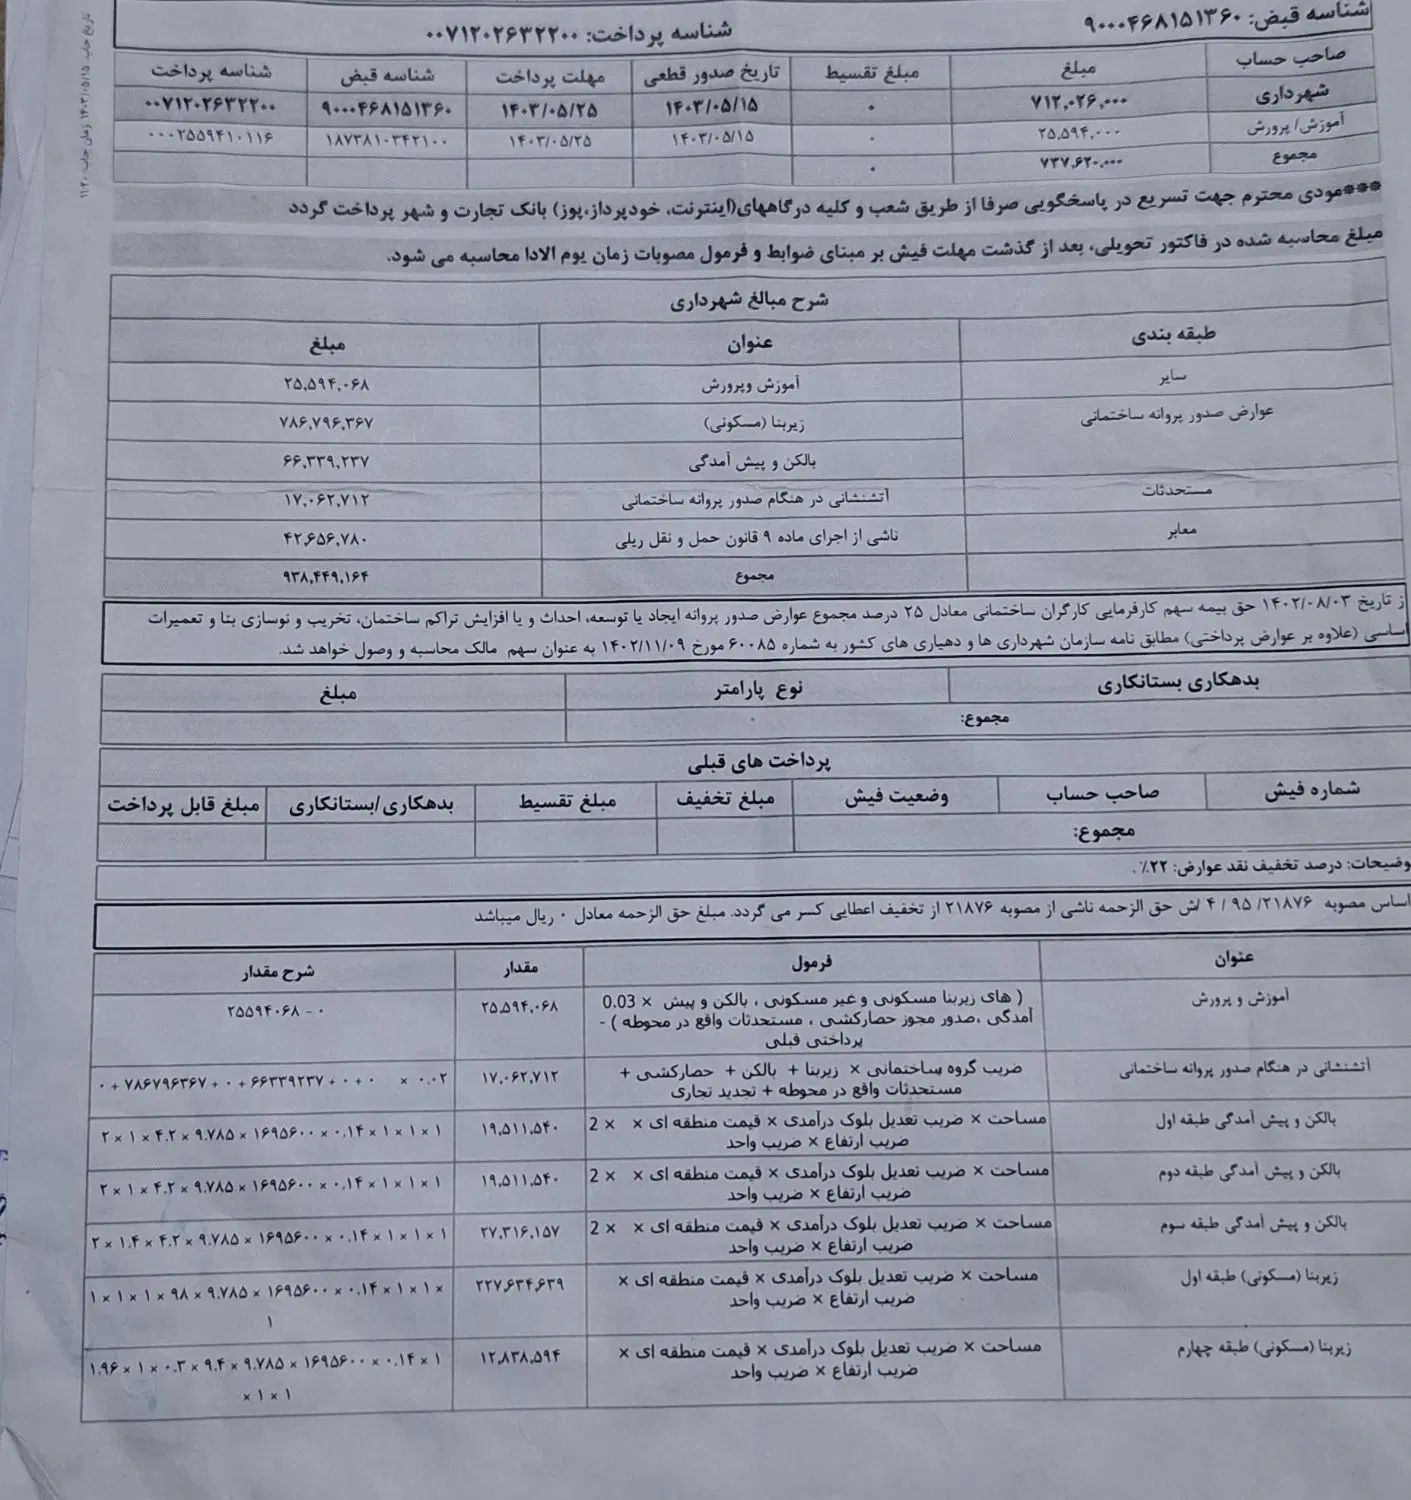 شناسه قبض: ۹۰۰۰۴۶۸۱۵۱۳۶۰
شناسه پرداخت: ۰۰۷۱۲۰۲۶۳۲۲۰۰
تاریخ چاپ: ۱۴۰۳/۰۵/۱۵ زمان چاپ: ۱۱:۲۰
صاحب حساب مبلغ مبلغ تقسیط تاریخ صدور قطعی مهلت پرداخت شناسه قبض شناسه پرداخت
شهرداری ۷۱۲,۰۲۶,۰۰۰ ۰ ۱۴۰۳/۰۵/۱۵ ۱۴۰۳/۰۵/۲۵ ۹۰۰۰۴۶۸۱۵۱۳۶۰ ۰۰۷۱۲۰۲۶۳۲۲۰۰
آموزش/ پرورش ۲۵,۵۹۴,۰۰۰ ۰ ۱۴۰۳/۰۵/۱۵ ۱۴۰۳/۰۵/۲۵ ۱۸۷۳۸۱۰۳۴۲۱۰۰ ۰۰۰۲۵۵۹۴۱۰۱۱۶
مجموع ۷۳۷,۶۲۰,۰۰۰ ۰
***مودی محترم جهت تسریع در پاسخگویی صرفا از طریق شعب و کلیه درگاههای(اینترنت، خودپرداز،پوز) بانک تجارت و شهر پرداخت گردد
مبلغ محاسبه شده در فاکتور تحویلی، بعد از گذشت مهلت فیش بر مبنای ضوابط و فرمول مصوبات زمان یوم الادا محاسبه می شود.
شرح مبالغ شهرداری
طبقه بندی عنوان مبلغ
سایر آموزش وپرورش ۲۵,۵۹۴,۰۶۸
عوارض صدور پروانه ساختمانی زیربنا (مسکونی) ۷۸۶,۷۹۶,۳۶۷
بالکن و پیش آمدگی ۶۶,۳۳۹,۲۳۷
مستحدثات آتشنشانی در هنگام صدور پروانه ساختمانی ۱۷,۰۶۲,۷۱۲
معابر ناشی از اجرای ماده ۹ قانون حمل و نقل ریلی ۴۲,۶۵۶,۷۸۰
مجموع ۹۳۸,۴۴۹,۱۶۴
از تاریخ ۱۴۰۲/۰۸/۰۳ حق بیمه سهم کارفرمایی کارگران ساختمانی معادل ۲۵ درصد مجموع عوارض صدور پروانه ایجاد یا توسعه، احداث و یا افزایش تراکم ساختمان، تخریب و نوسازی بنا و تعمیرات
اساسی (علاوه بر عوارض پرداختی) مطابق نامه سازمان شهرداری ها و دهیاری های کشور به شماره ۶۰۰۸۵ مورخ ۱۴۰۲/۱۱/۰۹ به عنوان سهم مالک محاسبه و وصول خواهد شد.
بدهکاری بستانکاری نوع پارامتر مبلغ
مجموع: ۰
پرداخت های قبلی
شماره فیش صاحب حساب وضعیت فیش مبلغ تخفیف مبلغ تقسیط بدهکاری/بستانکاری مبلغ قابل پرداخت
مجموع:
وضیحات: درصد تخفیف نقد عوارض: ۲۲٪.
اساس مصوبه ۲۱۸۷۶/ ۹۵ / ۴ /ش حق الزحمه ناشی از مصوبه ۲۱۸۷۶ از تخفیف اعطایی کسر می گردد. مبلغ حق الزحمه معادل ۰ ریال میباشد
عنوان فرمول مقدار شرح مقدار
آموزش و پرورش ( های زیربنا مسکونی و غیر مسکونی ، بالکن و پیش × 0.03 ۲۵,۵۹۴,۰۶۸ ۲۵۵۹۴۰۶۸ - ۰
آمدگی ،صدور مجوز حصارکشی ، مستحدثات واقع در محوطه ) -
پرداختی قبلی
آتشنشانی در هنگام صدور پروانه ساختمانی ضریب گروه ساختمانی × زیربنا + بالکن + حصارکشی + ۱۷,۰۶۲,۷۱۲ ۰ + ۷۸۶۷۹۶۳۶۷ + ۰ + ۶۶۳۳۹۲۳۷ + ۰ + ۰ × ۰.۰۲
مستحدثات واقع در محوطه + تجدید تجاری
بالکن و پیش آمدگی طبقه اول مساحت × ضریب تعدیل بلوک درآمدی × قیمت منطقه ای × × 2 ۱۹,۵۱۱,۵۴۰ ۲ × ۱ × ۴.۲ × ۹.۷۸۵ × ۱۶۹۵۶۰۰ × ۰.۱۴ × ۱ × ۱ × ۱
ضریب ارتفاع × ضریب واحد
بالکن و پیش آمدگی طبقه دوم مساحت × ضریب تعدیل بلوک درآمدی × قیمت منطقه ای × × 2 ۱۹,۵۱۱,۵۴۰ ۲ × ۱ × ۴.۲ × ۹.۷۸۵ × ۱۶۹۵۶۰۰ × ۰.۱۴ × ۱ × ۱ × ۱
ضریب ارتفاع × ضریب واحد
بالکن و پیش آمدگی طبقه سوم مساحت × ضریب تعدیل بلوک درآمدی × قیمت منطقه ای × × 2 ۲۷,۳۱۶,۱۵۷ ۲ × ۱.۴ × ۴.۲ × ۹.۷۸۵ × ۱۶۹۵۶۰۰ × ۰.۱۴ × ۱ × ۱ × ۱
ضریب ارتفاع × ضریب واحد
زیربنا (مسکونی) طبقه اول مساحت × ضریب تعدیل بلوک درآمدی × قیمت منطقه ای × ۲۲۷,۶۳۴,۶۳۹ ۱ × ۱ × ۱ × ۹۸ × ۹.۷۸۵ × ۱۶۹۵۶۰۰ × ۰.۱۴ × ۱ × ۱ ×
ضریب ارتفاع × ضریب واحد ۱
زیربنا (مسکونی) طبقه چهارم مساحت × ضریب تعدیل بلوک درآمدی × قیمت منطقه ای × ۱۲,۸۳۸,۵۹۴ ۱.۹۶ × ۱ × ۰.۳ × ۹.۴ × ۹.۷۸۵ × ۱۶۹۵۶۰۰ × ۰.۱۴ × ۱
ضریب ارتفاع × ضریب واحد × ۱ × ۱